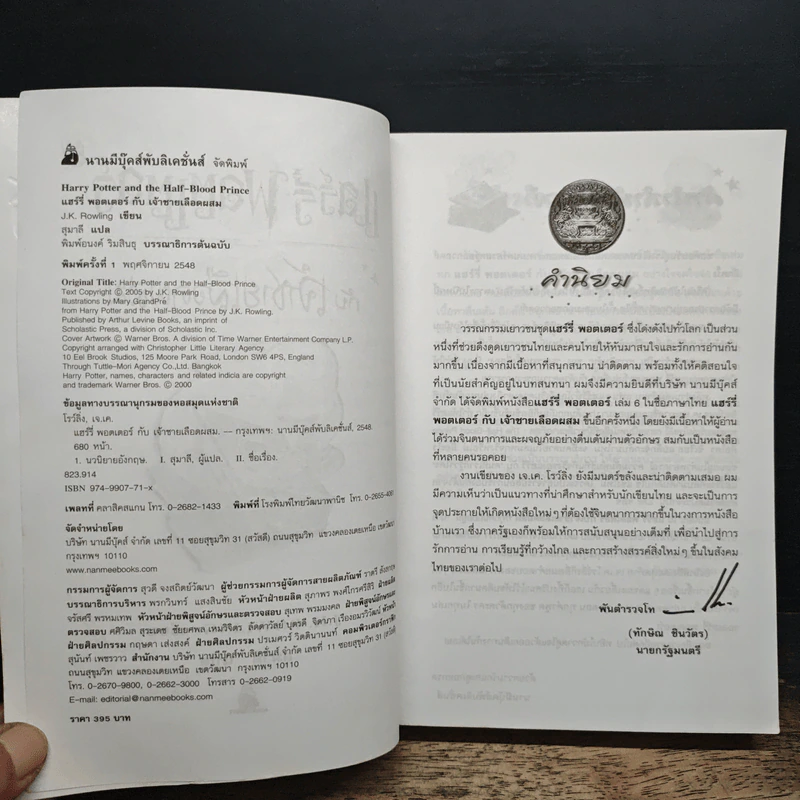 นานมีบุ๊คส์พับลิเคชั่นส์ จัดพิมพ์
Harry Potter and the Half-Blood Prince
แฮร์รี่ พอตเตอร์ กับ เจ้าชายเลือดผสม
J.K. Rowling เขียน
สุมาลี แปล
พิมพ์อนงค์ ริมสินธุ บรรณาธิการต้นฉบับ
พิมพ์ครั้งที่ 1 พฤศจิกายน 2548
Original Title: Harry Potter and the Half-Blood Prince
Text Copyright © 2005 by J.K. Rowling
Illustrations by Mary GrandPré
from Harry Potter and the Half-Blood Prince by J.K. Rowling.
Published by Arthur Levine Books, an imprint of
Scholastic Press, a division of Scholastic Inc.
Cover Artwork © Warner Bros. A division of Time Warner Entertainment Company LP.
Copyright arranged with Christopher Little Literary Agency
10 Eel Brook Studios, 125 Moore Park Road, London SW6 4PS, England
Through Tuttle-Mori Agency Co.,Ltd. Bangkok
Harry Potter, names, characters and related indicia are copyright
and trademark Warner Bros. © 2000
ข้อมูลทางบรรณานุกรมของหอสมุดแห่งชาติ
โรว์ลิ่ง, เจ.เค.
แฮร์รี่ พอตเตอร์ กับ เจ้าชายเลือดผสม. — กรุงเทพฯ: นานมีบุ๊คส์พับลิเคชั่นส์, 2548.
680 หน้า.
1. นวนิยายอังกฤษ. I. สุมาลี, ผู้แปล. II. ชื่อเรื่อง.
823.914
ISBN 974-9907-71-x
เพลทที่ คลาสิคสแกน โทร. 0-2682-1433 พิมพ์ที่ โรงพิมพ์ไทยวัฒนาพานิช โทร. 0-2655-4061
จัดจำหน่ายโดย
บริษัท นานมีบุ๊คส์ จำกัด เลขที่ 11 ซอยสุขุมวิท 31 (สวัสดี) ถนนสุขุมวิท แขวงคลองเตยเหนือ เขตวัฒนา
กรุงเทพฯ 10110
www.nanmeebooks.com
กรรมการผู้จัดการ สุวดี จงสถิตย์วัฒนา ผู้ช่วยกรรมการผู้จัดการสายผลิตภัณฑ์ ราตรี
บรรณาธิการบริหาร พรกวินทร์ แสงสินชัย หัวหน้าฝ่ายผลิต สุภาพร พงศ์ไกรศรีสิริ ฝ่ายผลิต
จรัสศรี พรหมเทพ หัวหน้าฝ่ายพิสูจน์อักษรและตรวจสอบ สุเทพ พรมมงคล ฝ่ายพิสูจน์อักษรและ
ตรวจสอบ ศศิวิมล สุระเดช ชัยยศพล เหมวิจิตร ลัดดาวัลย์ บุตรดี จิดาภา เรืองอมรวิวัฒน์ หัวหน้า
ฝ่ายศิลปกรรม กฤษดา เส่งสงค์ ฝ่ายศิลปกรรม ปรเมศวร์ วิตตินานนท์ คอมพิวเตอร์กราฟิก
สุนันท์ เพชรวาว สำนักงาน บริษัท นานมีบุ๊คส์พับลิเคชั่นส์ จำกัด เลขที่ 11 ซอยสุขุมวิท 31 (สวัสดี)
ถนนสุขุมวิท แขวงคลองเตยเหนือ เขตวัฒนา กรุงเทพฯ 10110
โทร. 0-2670-9800, 0-2662-3000 โทรสาร 0-2662-0919
E-mail: editorial@nanmeebooks.com
ราคา 395 บาท
คำนิยม
วรรณกรรมเยาวชนชุดแฮร์รี่ พอตเตอร์ ซึ่งโด่งดังไปทั่วโลก เป็นส่วน
หนึ่งที่ช่วยดึงดูดเยาวชนไทยและคนไทยให้หันมาสนใจและรักการอ่านกัน
มากขึ้น เนื่องจากมีเนื้อหาที่สนุกสนาน น่าติดตาม พร้อมทั้งให้คติสอนใจ
ที่เป็นนัยสำคัญอยู่ในบทสนทนา ผมจึงมีความยินดีที่บริษัท นานมีบุ๊คส์
จำกัด ได้จัดพิมพ์หนังสือแฮร์รี่ พอตเตอร์ เล่ม 6 ในชื่อภาษาไทย แฮร์รี่
พอตเตอร์ กับ เจ้าชายเลือดผสม ขึ้นอีกครั้งหนึ่ง โดยยังมีเนื้อหาให้ผู้อ่าน
ได้ร่วมจินตนาการและผจญภัยอย่างตื่นเต้นผ่านตัวอักษร สมกับเป็นหนังสือ
ที่หลายคนรอคอย
งานเขียนของ เจ.เค. โรว์ลิ่ง ยังมีมนตร์ขลังและน่าติดตามเสมอ ผม
มีความเห็นว่าเป็นแนวทางที่น่าศึกษาสำหรับนักเขียนไทย และจะเป็นการ
จุดประกายให้เกิดหนังสือใหม่ๆ ที่ต้องใช้จินตนาการมากขึ้นในวงการหนังสือ
บ้านเรา ซึ่งภาครัฐเองก็พร้อมให้การสนับสนุนอย่างเต็มที่ เพื่อนำไปสู่การ
รักการอ่าน การเรียนรู้ที่กว้างไกล และการสร้างสรรค์สิ่งใหม่ๆ ขึ้นในสังคม
ไทยของเราต่อไป
พันตำรวจโท
(ทักษิณ ชินวัตร)
นายกรัฐมนตรี